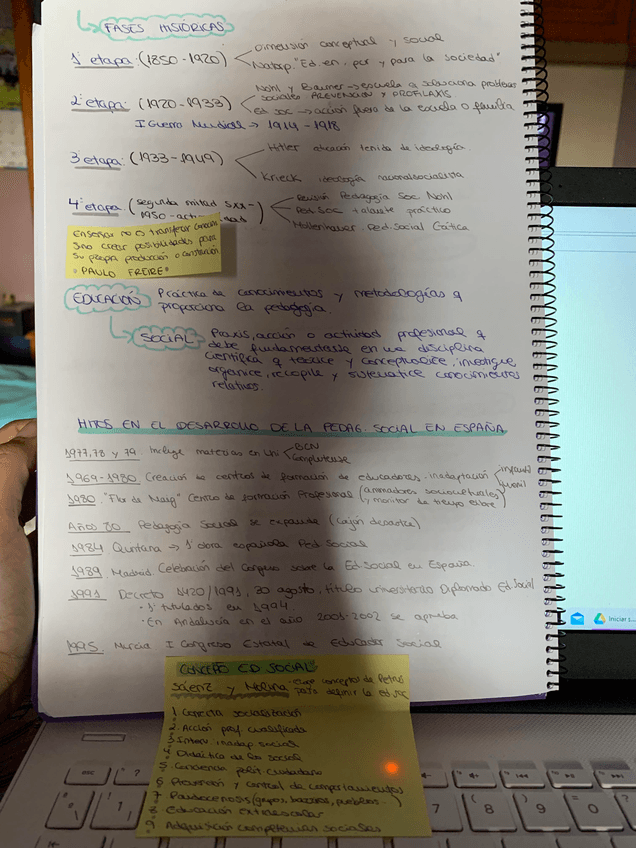 FASES HISTÓRICAS
1ª etapa: (1850-1920)
Dimensión conceptual y social
Natorp. "Ed. en, por y para la sociedad"
2ª etapa: (1920-1933)
Nohl y Baumer → escuela q soluciona problemas
sociales PREVENCIÓN Y PROFILAXIS
Ed soc → acción fuera de la escuela o familia
I Guerra Mundial → 1914-1918
3ª etapa: (1933-1949)
Hitler educación teñida de ideología.
Krieck ideología nacionalsocialista
4ª etapa: (segunda mitad sxx-
1950-
Revisión Pedagogía Soc Nohl
Ped. Soc + práctico
Mollenhauer. Ped. Social Crítica
Enseñar no es transferir
Sino crear posibilidades para
Su propia producción o construcción
"PAULO FREIRE"
EDUCACIÓN Práctica de conocimientos y metodologías q
proporciona la pedagogía.
SOCIAL Praxis, acción o actividad profesional q
debe fundamentarse en una disciplina
científica q teorice y conceptualice, investigue,
organice, recopile y sistematice conocimientos
relativos.
HITOS EN EL DESARROLLO DE LA PEDAG. SOCIAL EN ESPAÑA
1977, 78 y 79. Incluye materias en Uni
BCN
Complutense
1969-1980. Creación de centros de formación de educadores. inadaptación
infantil
juvenil
1980. "Flor de Maig" Centro de formación Profesional (animadores socioculturales
y monitor de tiempo libre)
Años 80 Pedagogía Social se expande (cajón desastre)
1984 Quintana → 1ª obra española Ped Social
1989. Madrid. Celebración del Congreso sobre la Ed Social en España
1991 Decreto 1420/1991, 30 agosto, título universitario Diplomado Ed. Social
· 1ª titulados en 1994
· En Andalucía en el año 2001-2002 se aprueba
1995. Murcia I Congreso Estatal de Educador Social
CONCEPTO ED SOCIAL
Sáenz y Molina - conceptos de Petrus
para definir la ed. soc
1 Correcta socialización
2. Acción prof. cualificada
3. Interv inadap social
4. Didáctica de lo social
5. Conciencia polít ciudadana
6 Prevención y control de comportamientos
7 Paidocenosis (grupos, barrios, pueblos...)
8 Educación extraescolar
9. Adquisición competencias sociales
Iniciar s...
esc